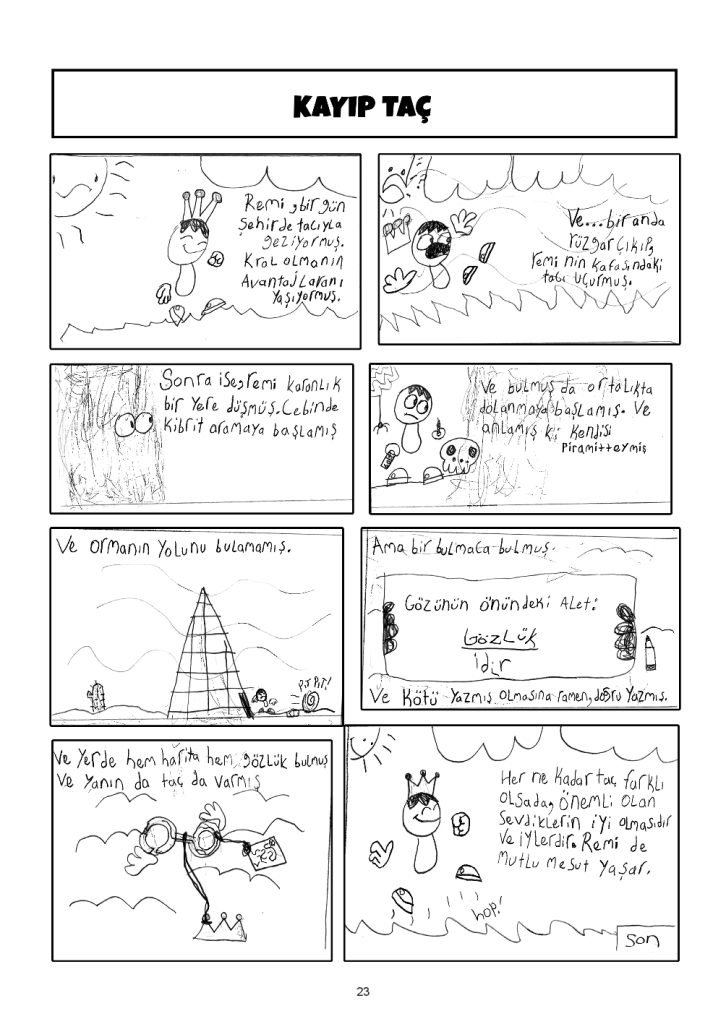 KAYIP TAÇ
Remi, bir gün
Şehirde tacıyla
geziyormuş.
Kral olmanın
Avantajlaranı
Yaşıyormuş.
Ve...bir anda
rüzgar Çıkıp,
remi nin kafasındaki
tacı uçurmuş.
Sonra ise, remi karanlık
bir yere düşmüş. Cebinde
kibrit aramaya başlamış
Ve bulmuş da ortalıkta
dolanmaya başlamış. Ve
anlamış ki kendisi
Piramitteymiş
Ve Ormanın Yolunu bulamamış.
Pıt Pıt!
Ama bir bulmaca bulmuş.
Gözünün önündeki Alet:
Gözlük
idir
Ve Kötü Yazmış olmasına ramen, doğru Yazmış.
Ve Yerde hem harita hem gözlük bulmuş
Ve yanın da taç da varmış
Her ne Kadar taç farklı
olsada, önemli olan
Sevdiklerin iyi olmasıdır
Ve iylerdir. Remi de
mutlu mesut Yaşar.
hop!
Son
23